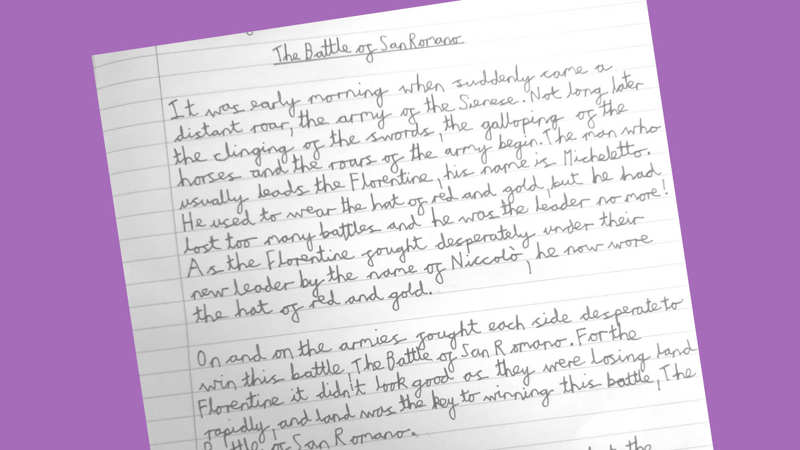 The Battle of San Romano
It was early morning when suddenly came a
distant roar, the army of the Sienese. Not long later
the clinging of the swords, the galloping of the
horses and the roars of the army begin. The man who
usually leads the Florentine, his name is Micheletto.
He used to wear the hat of red and gold, but he had
lost too many battles and he was the leader no more!
As the Florentine fought desperately under their
new leader by the name of Niccolò, he now wore
the hat of red and gold.
On and on the armies fought each side desperate to
win this battle, The Battle of San Romano. For the
Florentine it didn't look good as they were losing land
rapidly, and land was the key to winning this battle, The
Battle of San Romano.
the